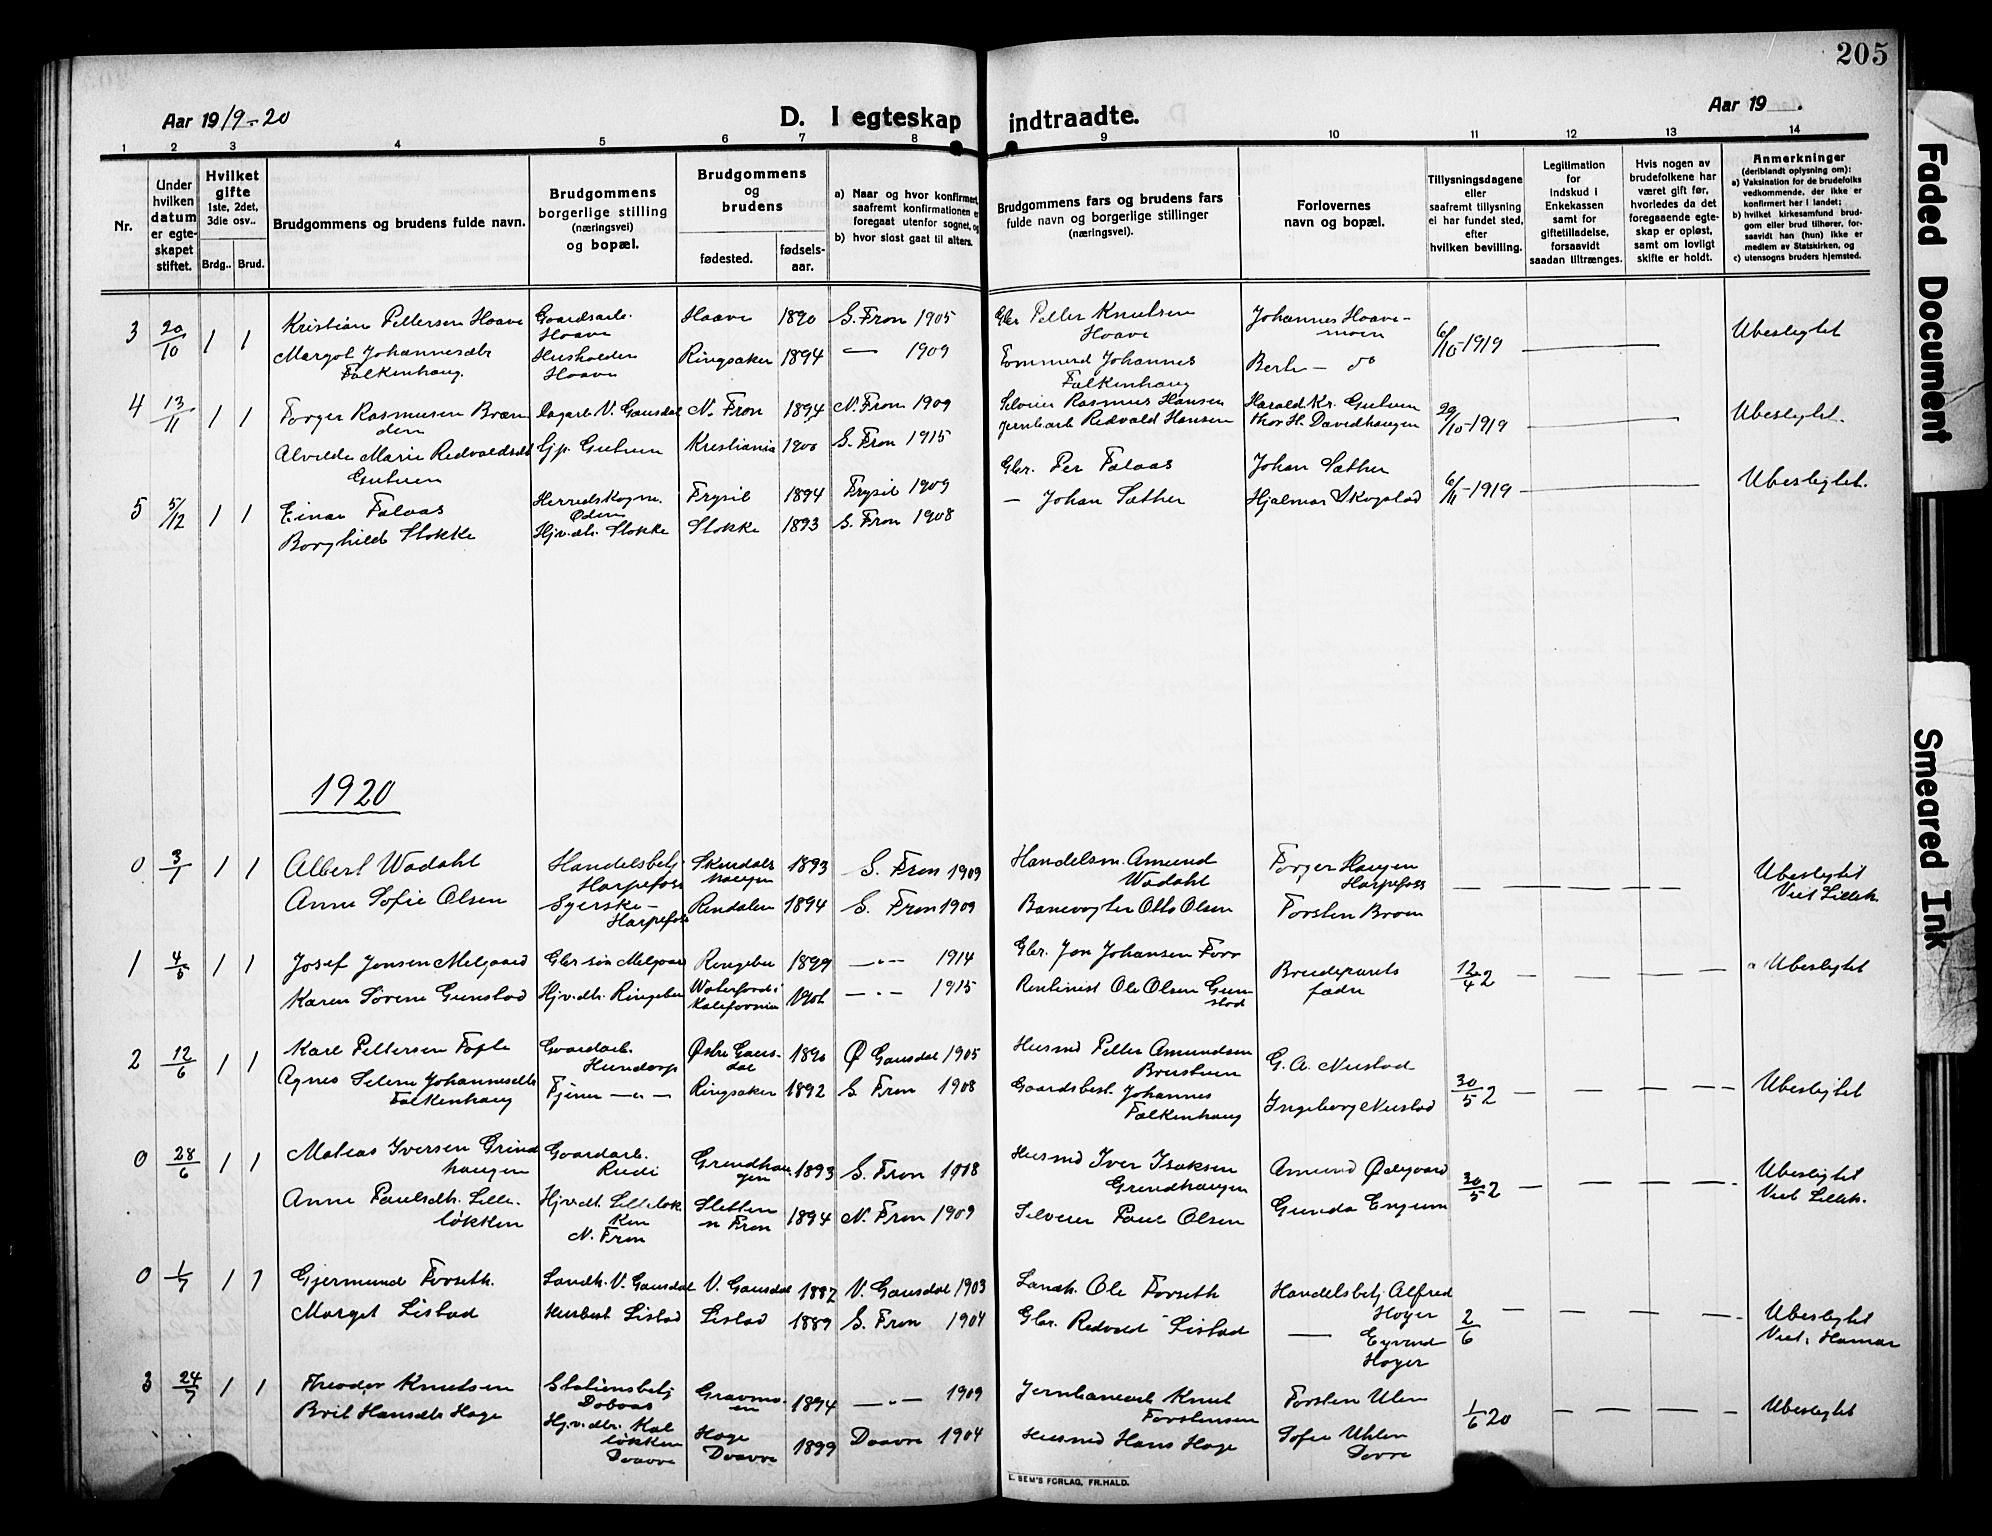 205
Aar 1919-20
D. I egteskap indtraadte.
Aar 19 .
1 2 3 4 5 6 7 8 9 10 11 12 13 14
Nr.
Under hvilken datum er egteskapet stiftet.
Hvilket gifte 1ste, 2det, 3die osv..
Brdg.. Brud.
Brudgommens og brudens fulde navn.
Brudgommens borgerlige stilling (næringsvei) og bopæl.
Brudgommens og brudens
fødested. fødselsaar.
a) Naar og hvor konfirmert, saafremt konfirmationen er foregaat utenfor sognet, og
b) hvor sidst gaat til alters.
Brudgommens fars og brudens fars fulde navn og borgerlige stillinger (næringsvei).
Forlovernes navn og bopæl.
Tillysningsdagene eller saafremt tillysning ei har fundet sted, efter hvilken bevilling.
Legitimation for indskud i Enkekassen samt for giftetilladelse, forsaavidt saadan tiltrænges.
Hvis nogen av brudefolkene har været gift før, hvorledes da det foregaaende egteskap er opløst, samt om lovligt skifte er holdt.
Anmerkninger (deriblandt oplysning om):
a) Vaksination for de brudefolks vedkommende, der ikke er konfirmert her i landet;
b) hvilket kirkesamfund brudgom eller brud tilhører, forsaavidt han (hun) ikke er medlem av Statskirken, og
c) utensogns bruders hjemsted.
3 20/10 1 1 Kristian Pettersen Hoave Gaardsarb. Hoave Hoave 1890 S. Fron 1905 Gbr Petter Knutsen Hoave Johannes Hoavemoen 6/10-1919 Ubeslegtet
Margot Johannesdtr Falkenhaug. Husholder Hoave Ringsaker 1894 — 1909 Tømmerd Johannes Falkenhaug Berte — do
4 13/11 1 1 Torger Rasmusen Brænden Dagarb. V. Gausdal N. Fron 1894 N. Fron 1909 Selveier Rasmus Hansen Harald Kr. Gutuen 29/10-1919 Ubeslegtet.
Alvilde Marie Redvaldsdt Gutuen Gjp. Gutuen Kristiania 1900 S. Fron 1915 Jernbarb Redvald Hansen Thor H. Davidhaugen
5 5/12 1 1 Einar Falaas Herredskogm. Øden Trysil 1894 Trysil 1909 Gbr. Per Falaas Johan Sæther 6/11-1919 Ubeslegtet.
Borghild Stokke Hjv.dtr. Stokke Stokke 1893 S. Fron 1908 — Johan Sæther Hjalmar Skogstad
1920
0 3/1 1 1 Albert Wadahl Handelsbetj Harpefoss 1893 S. Fron 1909 Handelsm. Amund Wadahl Torger Haugen Harpefoss — — — — Ubeslegtet Viet Lilleh.
Anne Sofie Olsen Syerske — Harpefoss Rendalen 1894 S. Fron 1909 Banevogter Otto Olsen Torsten Broen
1 4/5 1 1 Josef Jonsen Melgaard Gbr søn Melgaard Ringebu 1899 —"— 1914 Gbr. Jon Johansen Forr Brudeparets fædre 12/4 2 — — — — Ubeslegtet
Karen Sørene Gunstad Hjv.dtr. Ringebu Waterford i Kalifornien 1901 —"— 1915 Rentenist Ole Olsen Gunstad
2 12/6 1 1 Karl Pettersen Tofte Gaardarb. Hundorp Østre Gausdal 1890 Ø Gausdal 1905 Husmd Petter Amundsen G. A. Nustad 30/5 2 — — — — Ubeslegtet
Agnes Selene Johannesdtr Falkenhaug Tjener —"— Ringsaker 1892 S Fron 1908 Gaardsbest. Johannes Falkenhaug Ingeborg Nustad
0 28/6 1 1 Matias Iversen Grindhaugen Gaardarb. Rudi Grindhaugen 1893 S. Fron 1918 Husmd Iver Isaksen Grindhaugen Amund Ødegaard 30/5 2 — — — — Ubeslegtet Viet Lilleh.
Anne Paulsdtr. Lilleløkken Hjvdtr. Lilleløkken N. Fron Sletten N Fron 1894 N. Fron 1909 Selveier Paul Olsen Gunda Engum
0 1/7 1 1 Gjermund Forseth. Landh. V. Gausdal V. Gausdal 1882 V. Gausdal 1903 Landh. Ole Forseth Handelsbetj. Alfred Høyer 2/6 — — — — Ubeslegtet Viet, Hamar
Marget Listad Husbest Listad Listad 1889 S. Fron 1904 Gbr. Redvald Listad — Eyvind Høyer
3 24/7 1 1 Theodor Knutsen Stationsbetj Dobvas Gravmoen 1894 —"— 1909 Jernbanearb Knut Torstensen Torsten Ulen 1/6 20 — — — — Ubeslegtet
Brit Hansdtr Hage Hjv.dtr. Kalløkken Doavre Hage Doavre 1899 Doavre 1904 Husmd Hans Hage Sofie Uhlen Dovre
E. SEM'S FORLAG, FR.HALD.
Faded Document
Smeared Ink